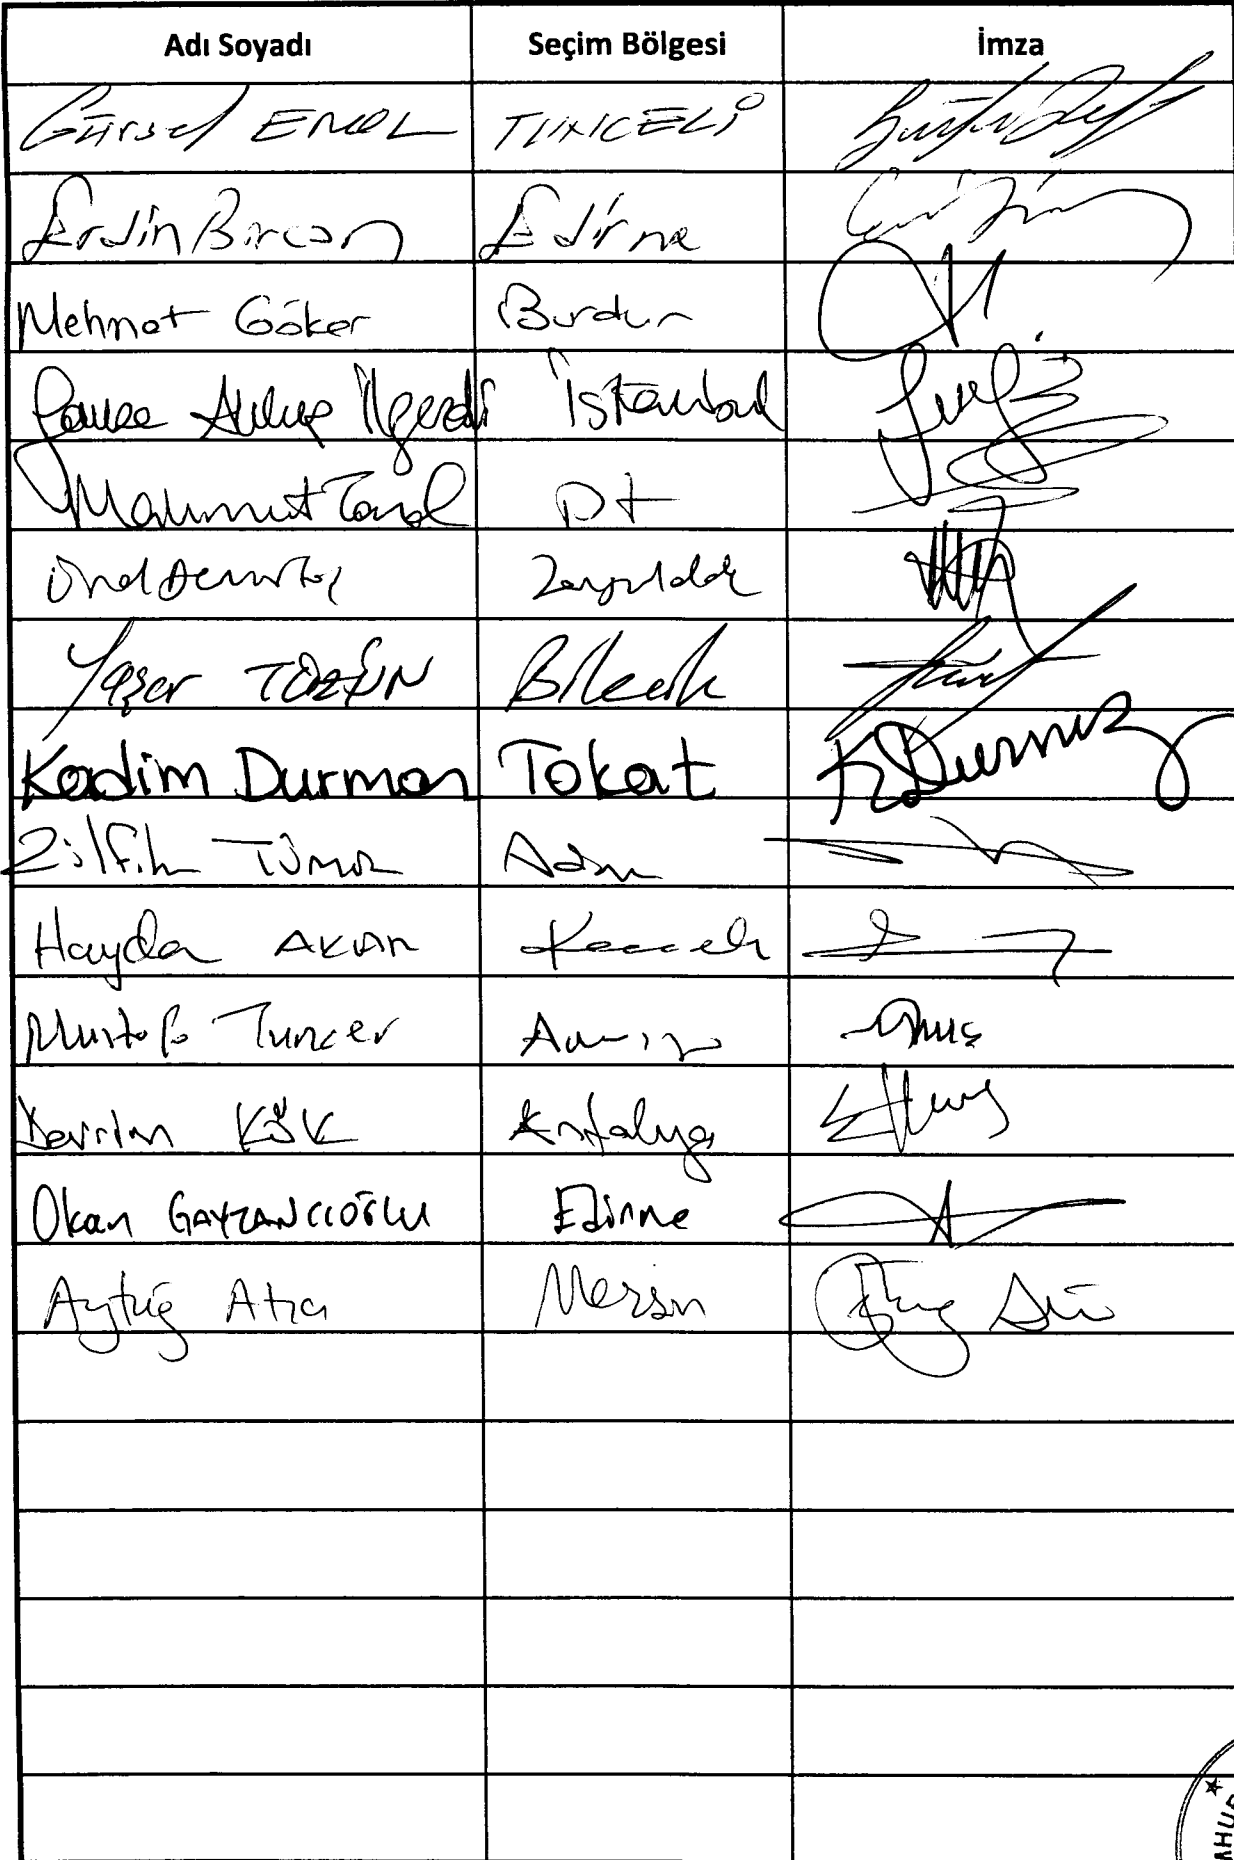 Adı Soyadı Seçim Bölgesi İmza
Gürsel EROL TUNCELİ
Erdin Bircan Edirne
Mehmet Göker Burdur
Gamze Akkuş İlgezdi İstanbul
Mahmut Tanal
Ünal Demirtaş Zonguldak
Yaşar TÜZÜN Bilecik
Kadim Durmaz Tokat K Durmaz
Zülfikar TÜMOR Adana
Haydar AKAR Kocaeli
Mustafa Tuncer Amasya
Devrim KÖK Antalya
Okan GAYTANCIOĞLU Edirne
Aytuğ Atıcı Mersin